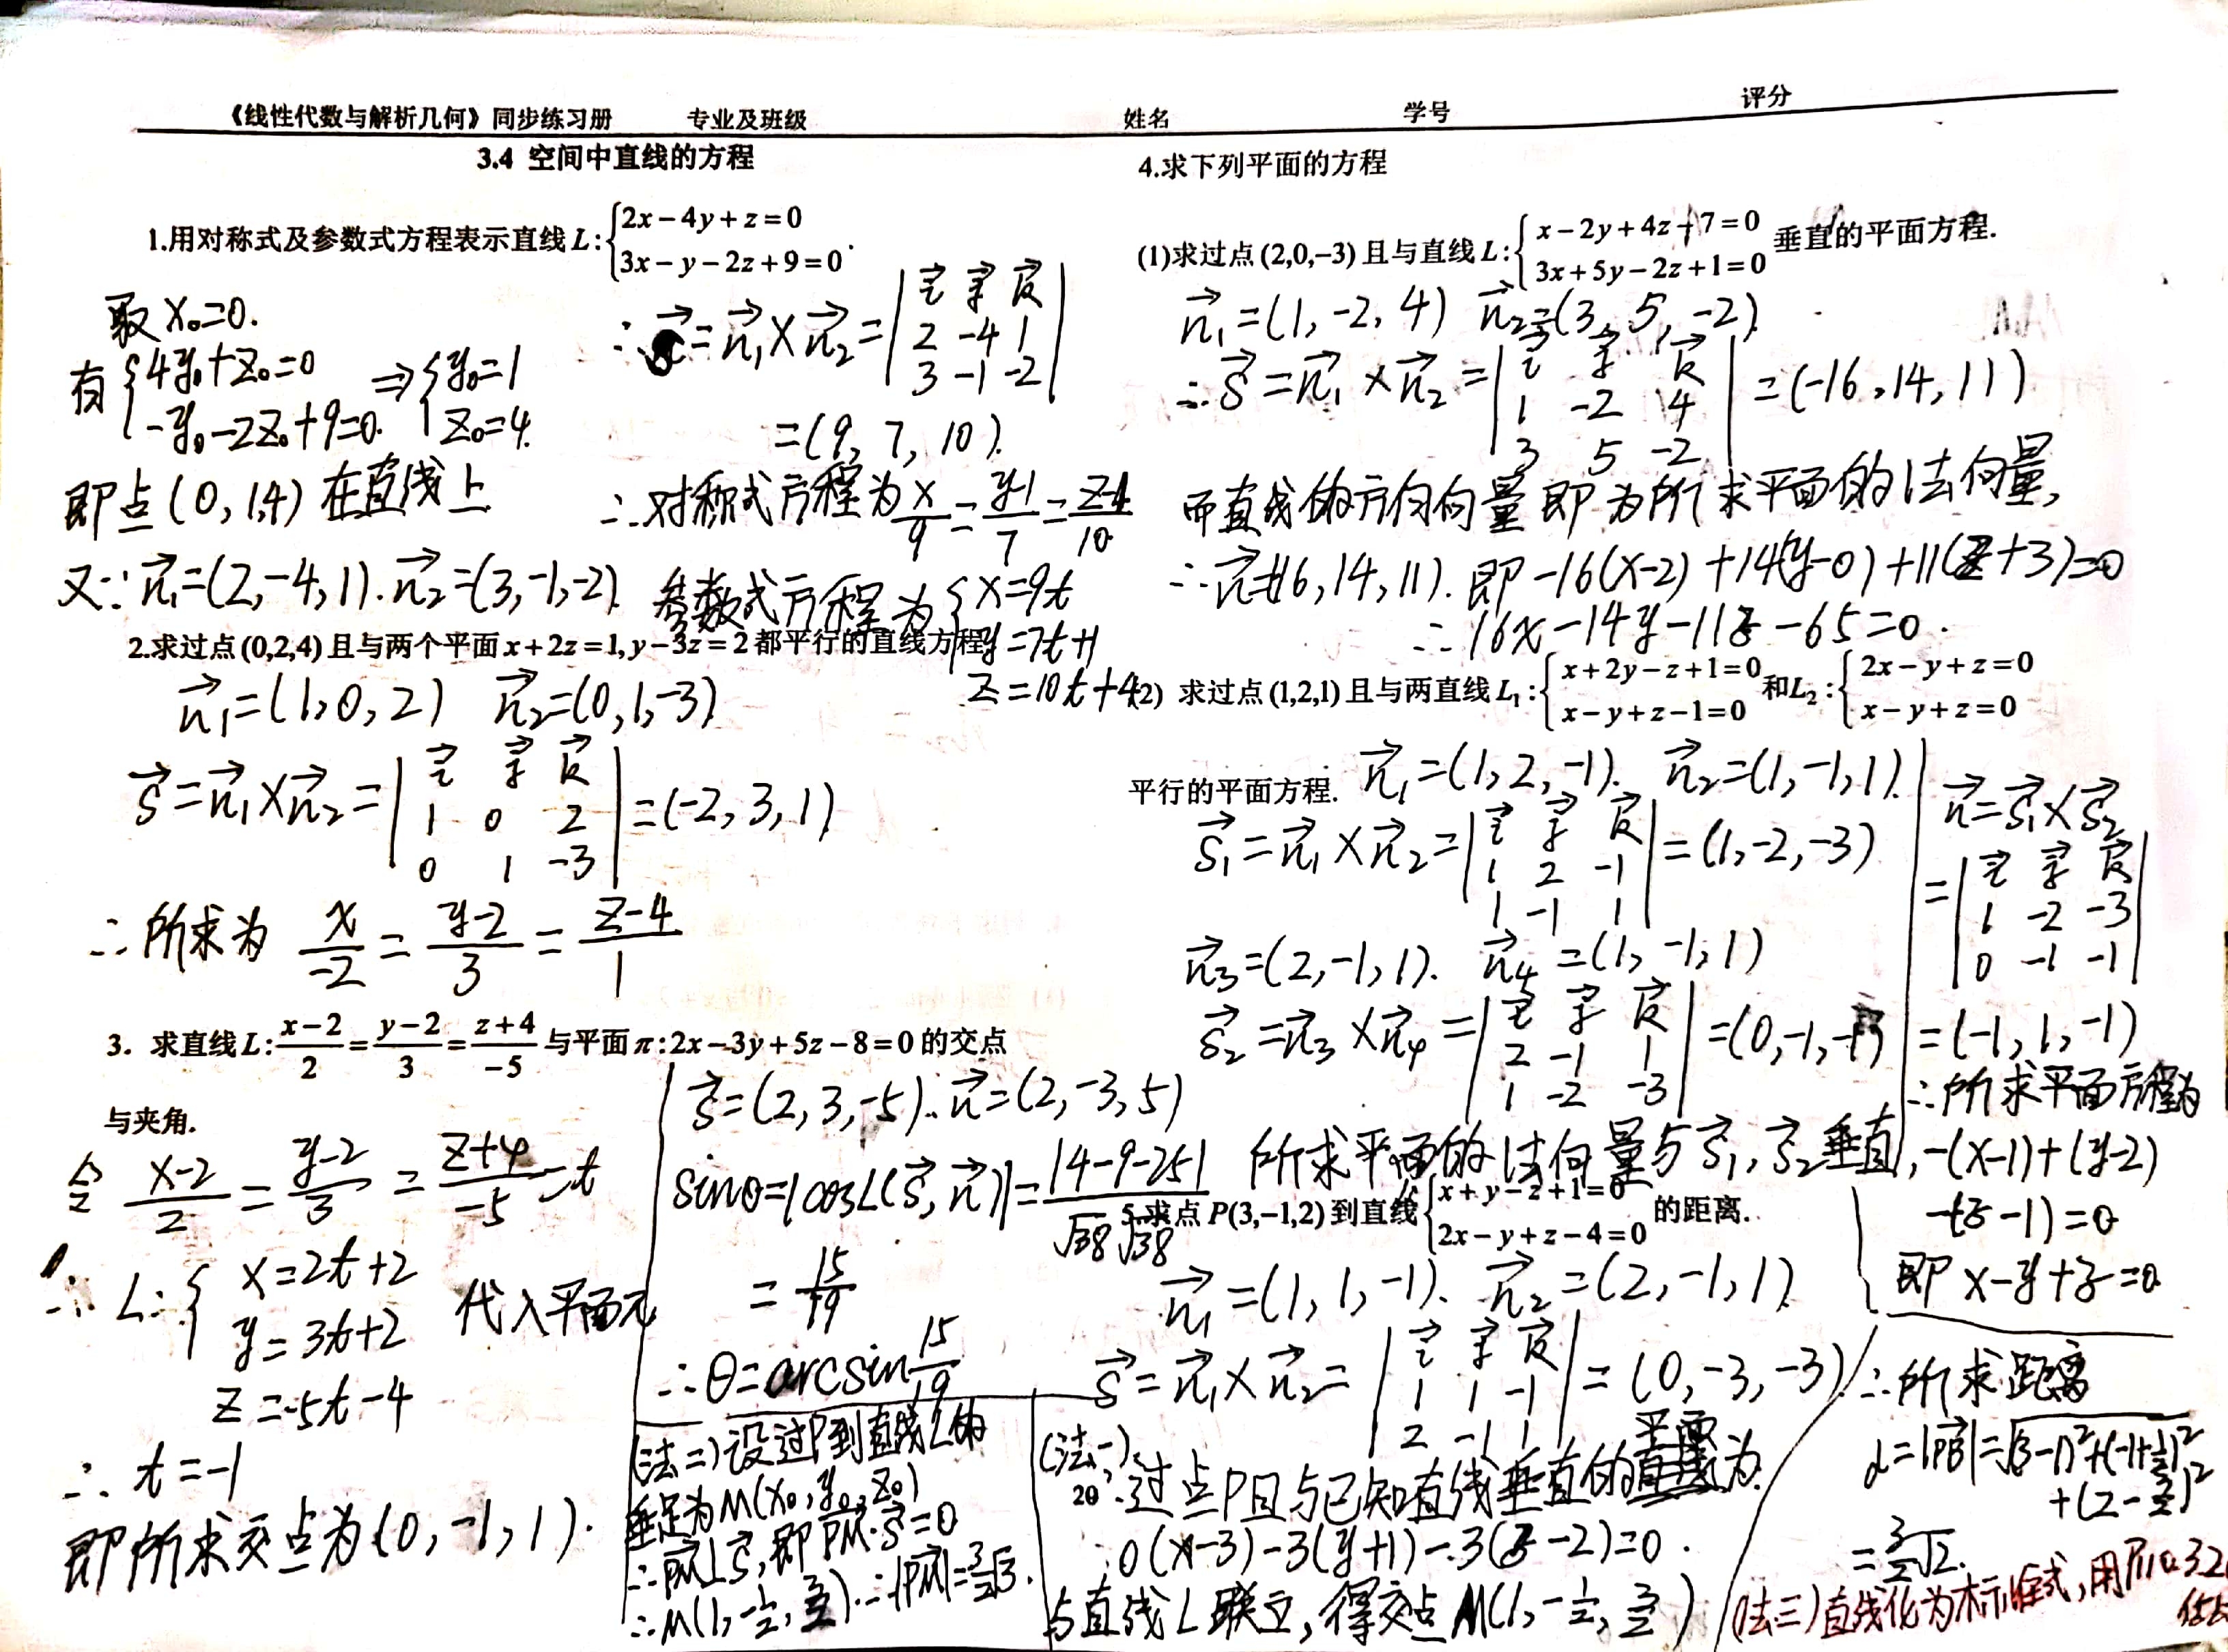 《线性代数与解析几何》同步练习册 专业及班级 姓名 学号 评分
3.4 空间中直线的方程
1.用对称式及参数式方程表示直线L:{2x-4y+z=0
3x-y-2z+9=0.
取x₀=0.
有{4y₀+z₀=0
-y₀-2z₀+9=0. ⇒{y₀=1
z₀=4.
即点(0,1,4)在直线上
又∵n₁=(2,-4,1).n₂=(3,-1,-2).
∴ =n₁×n₂=|i j k
2 -4 1
3 -1 -2|
=(9,7,10).
∴对称式方程为x/9=y-1/7=z-4/10
参数式方程为{x=9t
y=7t+1
z=10t+4
2.求过点(0,2,4)且与两个平面x+2z=1,y-3z=2都平行的直线方程
n₁=(1,0,2) n₂=(0,1,-3)
s=n₁×n₂=|i j k
1 0 2
0 1 -3|=(-2,3,1)
∴所求为 x/-2=y-2/3=z-4/1
3. 求直线L:x-2/2=y-2/3=z+4/-5与平面π:2x-3y+5z-8=0的交点
与夹角.
令 x-2/2=y-2/3=z+4/-5=t
∴ L:{x=2t+2
y=3t+2
z=-5t-4
代入平面π
∴ t=-1
即所求交点为(0,-1,1).
s=(2,3,-5).n=(2,-3,5)
sinθ=|cos∠(s,n)|=|4-9-25|/√38√38
=15/19
∴θ=arcsin15/19
4.求下列平面的方程
(1)求过点(2,0,-3)且与直线L:{x-2y+4z-7=0
3x+5y-2z+1=0 垂直的平面方程.
n₁=(1,-2,4) n₂=(3,5,-2).
∴s=n₁×n₂=|i j k
1 -2 4
3 5 -2|=(-16,14,11)
而直线的方向向量即为所求平面的法向量,
∴n=(-16,14,11). 即-16(x-2)+14(y-0)+11(z+3)=0
∴16x-14y-11z-65=0.
(2) 求过点(1,2,1)且与两直线L₁:{x+2y-z+1=0
x-y+z-1=0 和L₂:{2x-y+z=0
x-y+z=0
平行的平面方程. n₁=(1,2,-1). n₂=(1,-1,1).
s₁=n₁×n₂=|i j k
1 2 -1
1 -1 1|=(1,-2,-3)
n₃=(2,-1,1). n₄=(1,-1,1)
s₂=n₃×n₄=|i j k
2 -1 1
1 -2 -3|=(0,-1,-1)
所求平面的法向量与s₁,s₂垂直,
n=s₁×s₂
=|i j k
1 -2 -3
0 -1 -1|
=(-1,1,-1)
∴所求平面方程为
-(x-1)+(y-2)
-(z-1)=0
即x-y+z=0
5.求点P(3,-1,2)到直线{x+y-z+1=0
2x-y+z-4=0 的距离.
n₁=(1,1,-1). n₂=(2,-1,1)
s=n₁×n₂=|i j k
1 1 -1
2 -1 1|=(0,-3,-3)
(法一)
∵过点P且与已知直线垂直的平面为
0(x-3)-3(y+1)-3(z-2)=0.
与直线L联立,得交点M(1,-1/2,3/2)
∴所求距离
d=|PB|=√(3-1)²+(-1+1/2)²
+(2-3/2)²
=3/2√2.
(法二)设过P到直线L的
垂足为M(x₀,y₀,z₀)
∴PM⊥s,即PM·s=0
∴M(1,-1/2,3/2).∴|PM|=3/2√3.
(法三)直线化为标准式,用P110.32